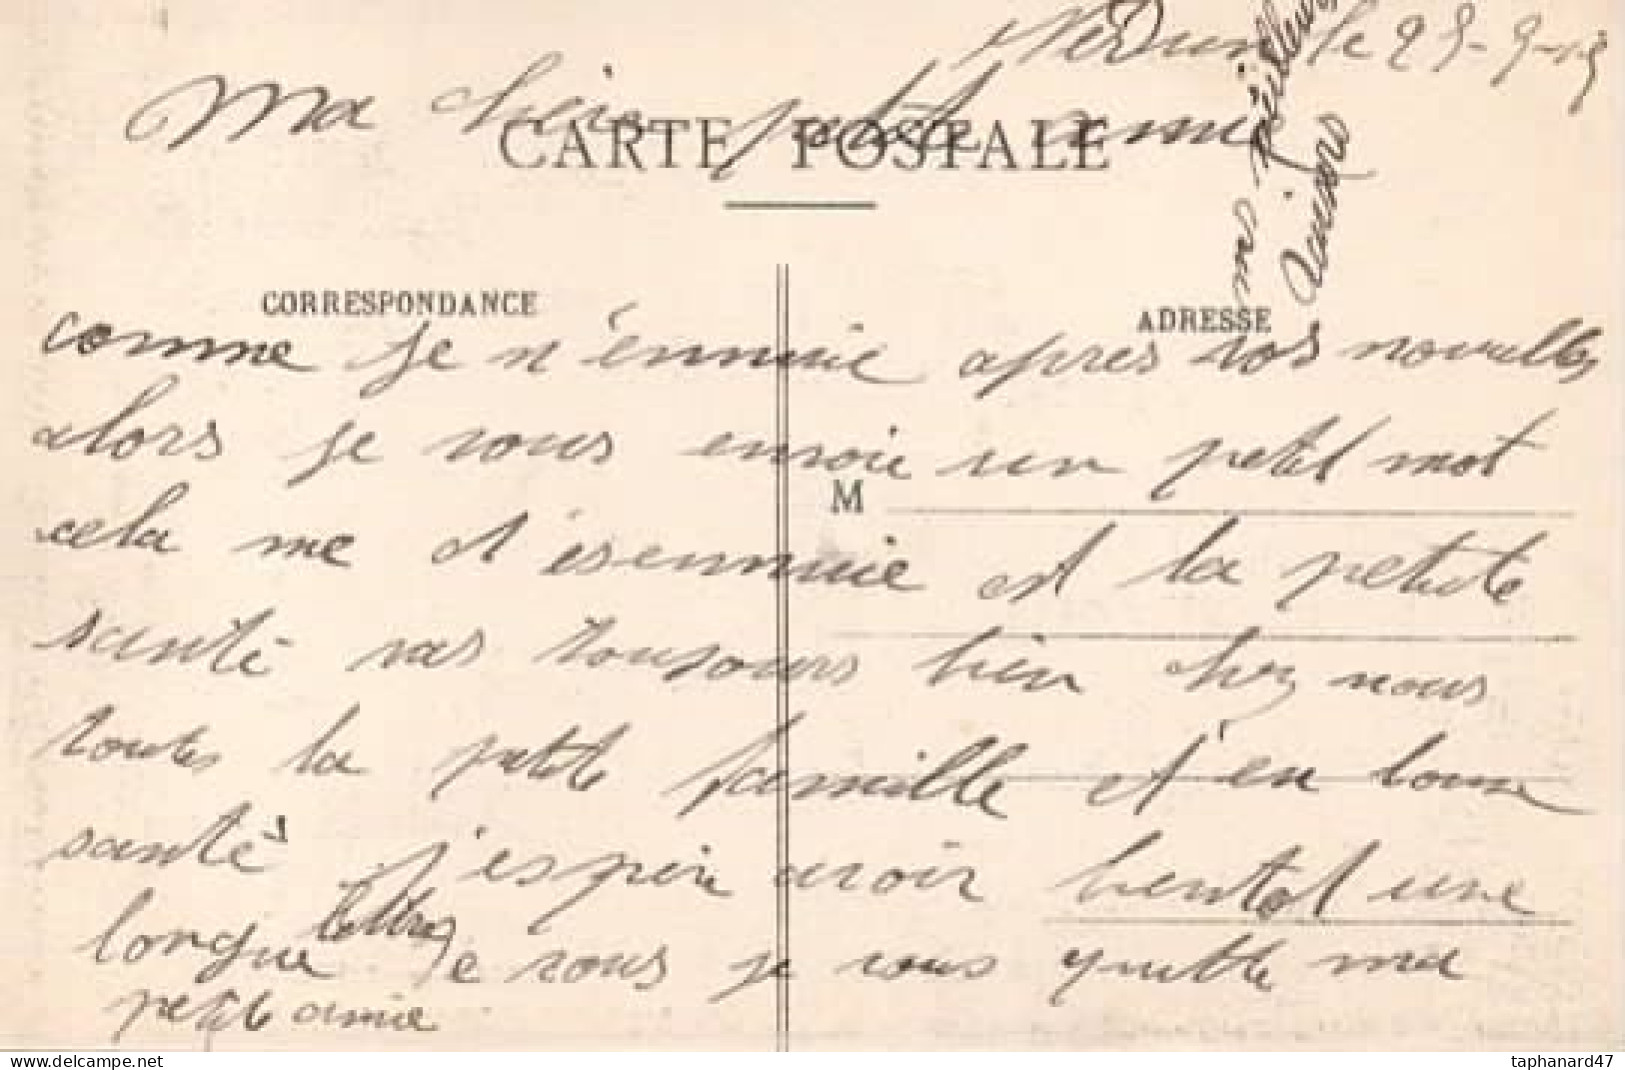 Verdun le 25-9-15
Ma chère petite amie
CARTE POSTALE
CORRESPONDANCE
ADRESSE
M
comme je n'énnuie apres vos nouvelles
alors je vous envoie un petit mot
cela me désennuie et la petite
santé vas toujours bien chez nous
toutes la petite famille et en bonne
santé j'espère avoir bentot une
longue lettre je vous je vous quitte ma
petite amie
mes meilleurs
taphanard47